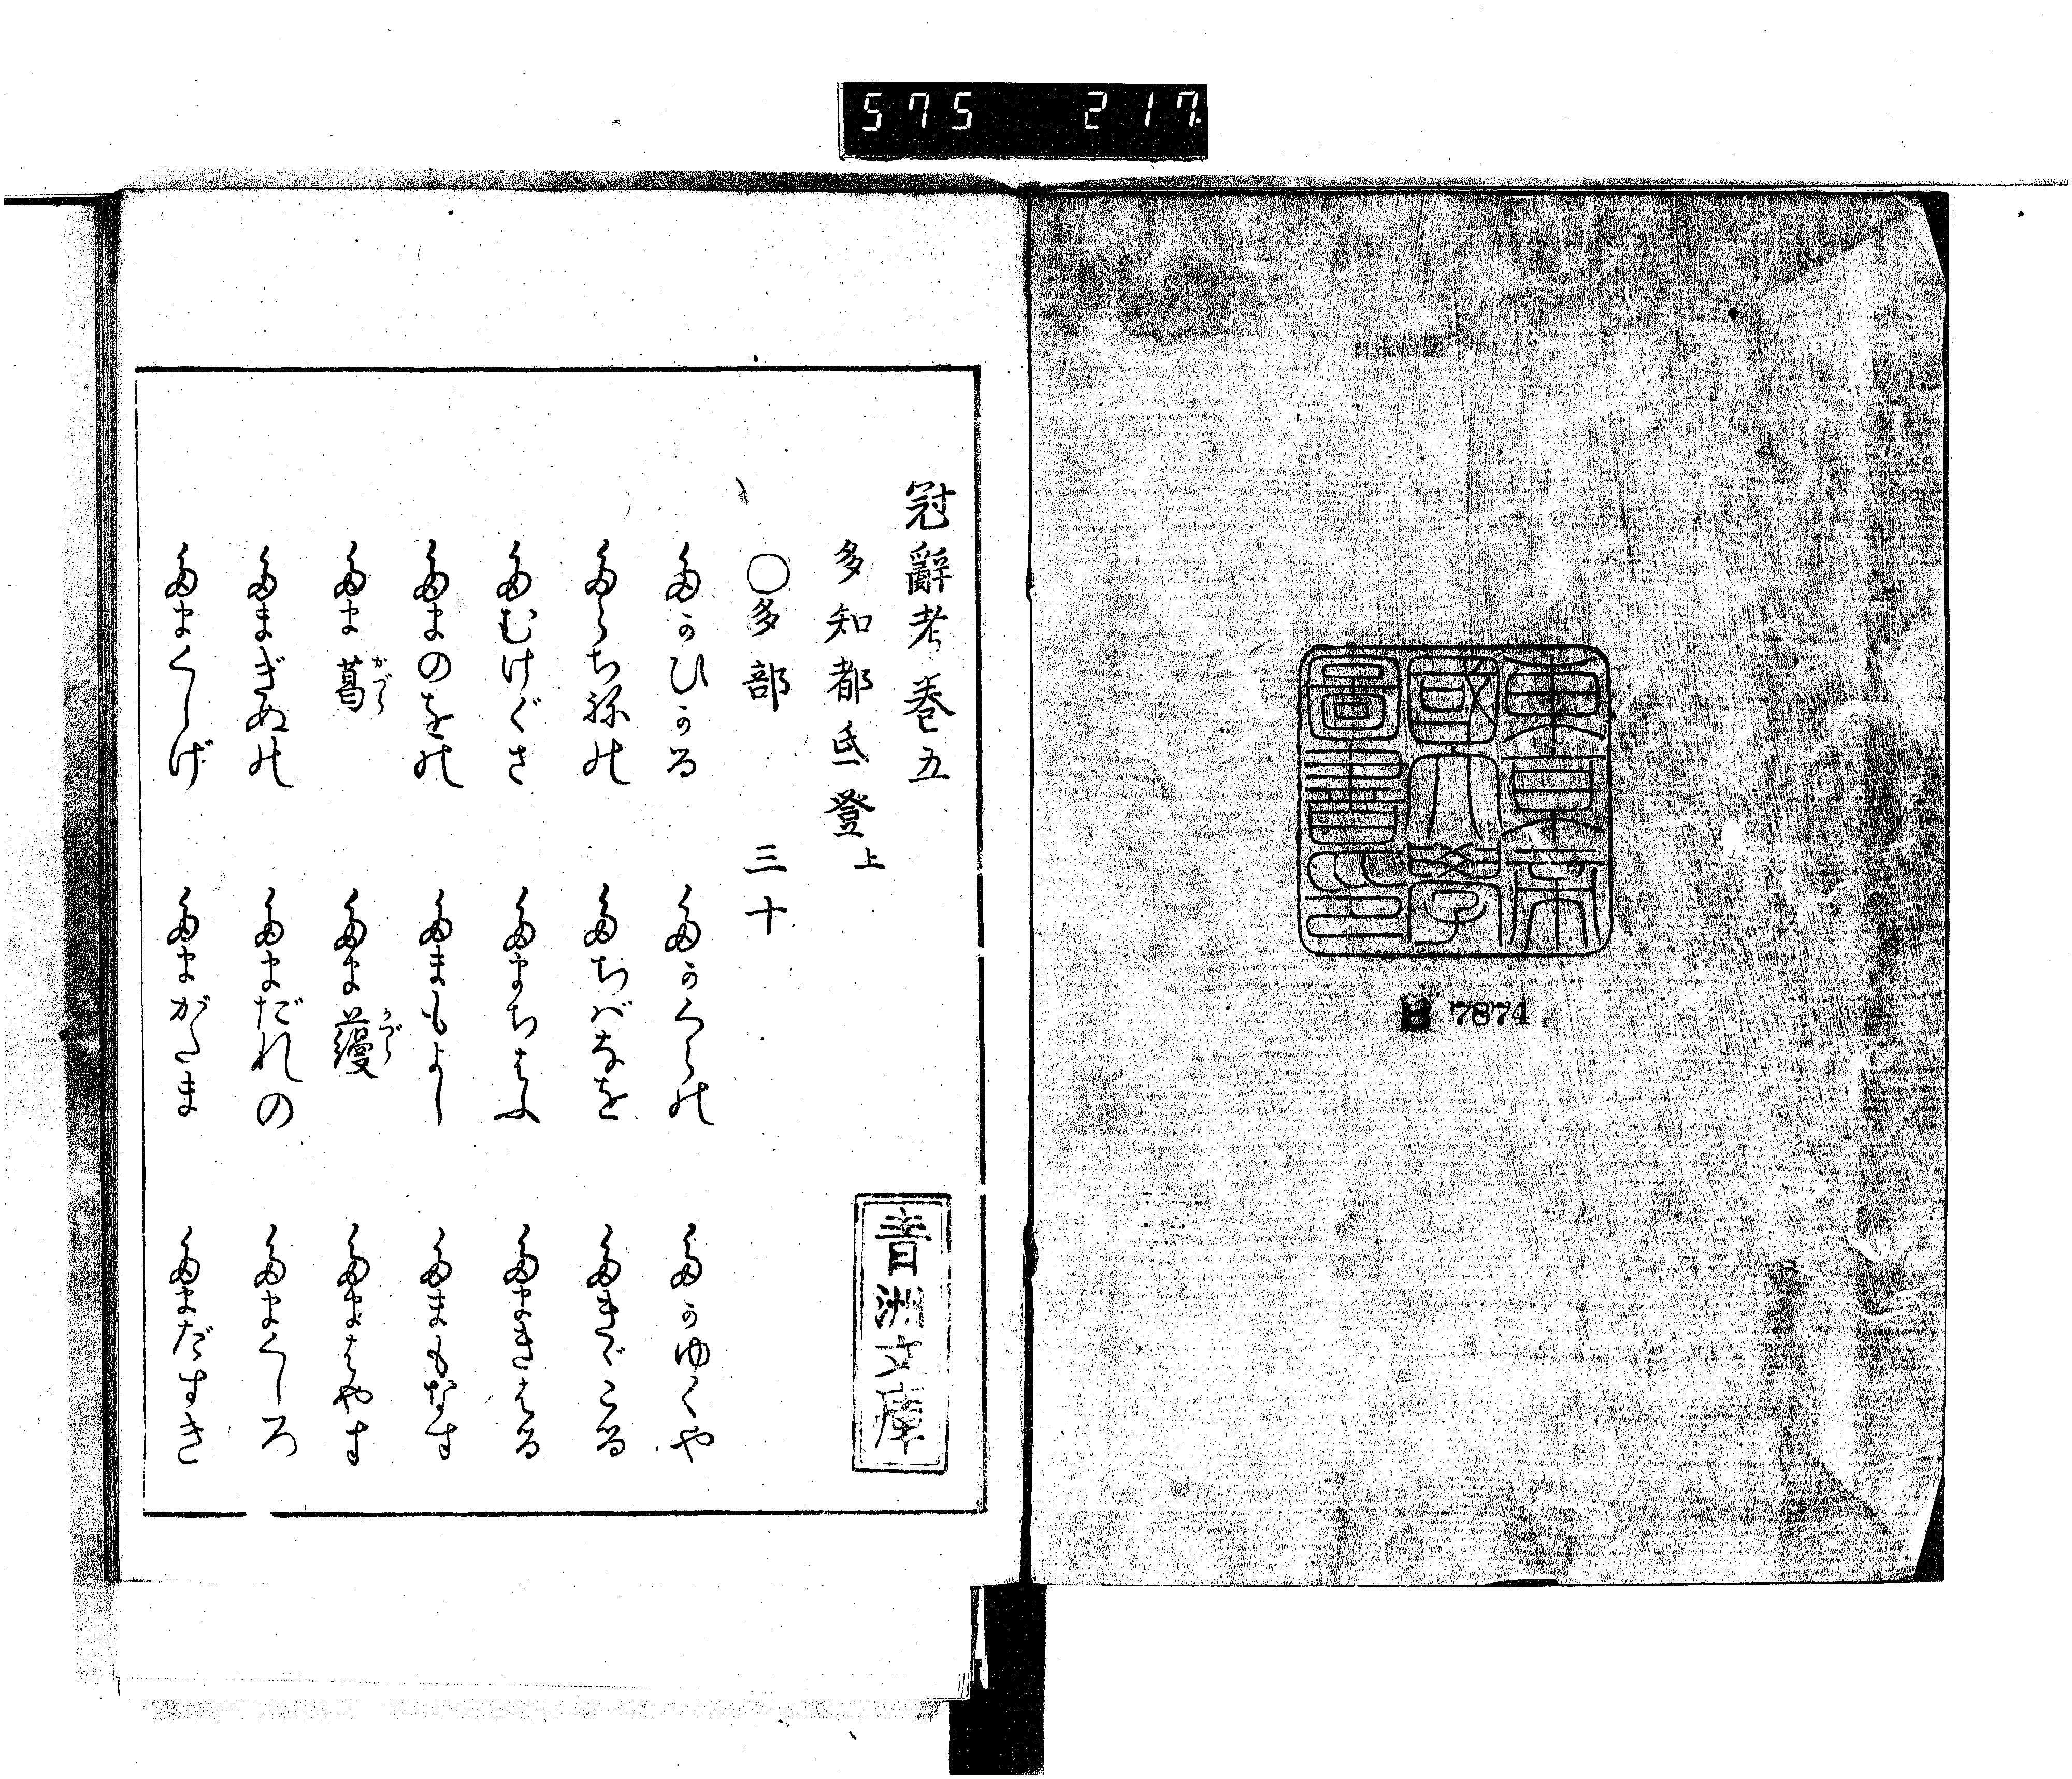 575 217
東京帝
國大學
圖書之印
B 7874
冠辭考巻五
多知都氐登上
○多部 三十
たかひかる たかくらの たかゆくや
たらちねの たちばなを たきぎこる
たむけぐさ たまちはふ たまきはる
たまのをの たまもよし たまもなす
たま葛かづら たま蘰かづら たまはやす
たまぎぬの たまだれの たまくしろ
たまくしげ たまがつま たまだすき
青洲文庫